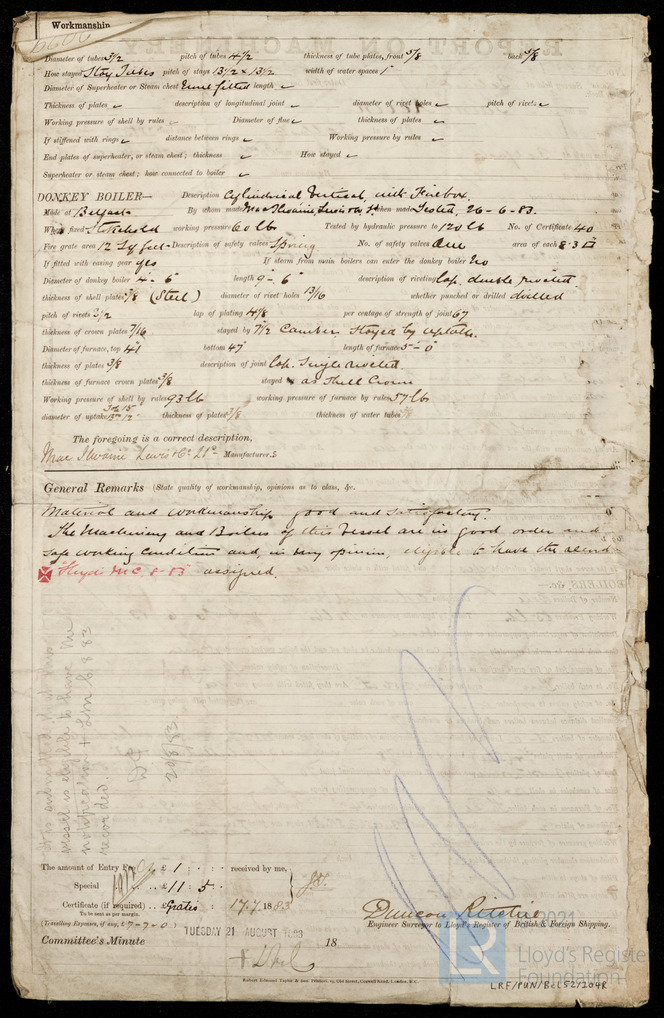 Workmanship
Diameter of tubes 3½ pitch of tubes 4½ thickness of tube plates, front 5/8 back 5/8
How stayed Stay Tubes pitch of stays 13½ x 13½ width of water spaces 1"
Diameter of Superheater or Steam chest None fitted length ✓
Thickness of plates ✓ description of longitudinal joint ✓ diameter of rivet holes ✓ pitch of rivets ✓
Working pressure of shell by rules ✓ Diameter of flue ✓ thickness of plates ✓
If stiffened with rings ✓ distance between rings ✓ Working pressure by rules ✓
End plates of superheater, or steam chest; thickness ✓ How stayed ✓
Superheater or steam chest; how connected to boiler ✓
DONKEY BOILER— Description Cylindrical Vertical with Firebox.
Made at Belfast By whom made MacIlwaine, Lewis & Co Ld when made Tested, 26-6-83.
Where fixed Stokehold working pressure 60 lb Tested by hydraulic pressure to 120 lb No. of Certificate 40
Fire grate area 12 Sq feet Description of safety valves Spring No. of safety valves One area of each 8·3 □"
If fitted with easing gear yes If steam from main boilers can enter the donkey boiler No
Diameter of donkey boiler 4'- 6" length 9'- 6" description of riveting Lap, double riveted.
thickness of shell plates 3/8 (Steel) diameter of rivet holes 13/16 whether punched or drilled drilled
pitch of rivets 2½ lap of plating 4 1/8 per centage of strength of joint 67
thickness of crown plates 7/16 stayed by 7½ Camber Stayed by uptake.
Diameter of furnace, top 41 bottom 47" length of furnace 5'-0"
thickness of plates 3/8 description of joint Lap. Single riveted.
thickness of furnace crown plates 3/8 stayed by as Shell Crown
Working pressure of shell by rules 93 lb working pressure of furnace by rules 57 lb
diameter of uptake thickness of plates 3/8 thickness of water tubes 3/8
The foregoing is a correct description,
Mac Ilwaine Lewis & Co Ld Manufacturers
General Remarks (State quality of workmanship, opinions as to class, &c.
Material and workmanship good and satisfactory.
The Machinery and Boilers of this Vessel are in good order and
safe working condition and, in my opinion, eligible to have the record
Lloyd's M.C. 8-83 assigned.
It is submitted that this
vessel is eligible to have the
notification + LMC 8.83
recorded.
20/8/83
The amount of Entry Fee .. £ 1 : · : · received by me,
Special .. £ 11 : 5 :
Certificate (if required) .. £ Gratis : 17.7.1883
To be sent as per margin.
(Travelling Expenses, if any, £ 7-7-0)
Duncan Ritchie
Engineer Surveyor to Lloyd's Register of British & Foreign Shipping.
Committee's Minute TUESDAY 21 AUGUST 1883 18
Robert Edmund Taylor & Son Printers, 19, Old Street, Goswell Road, London, E.C.
2021
LR
Lloyd's Register
Foundation
LRF/PUN/BEL52/204R